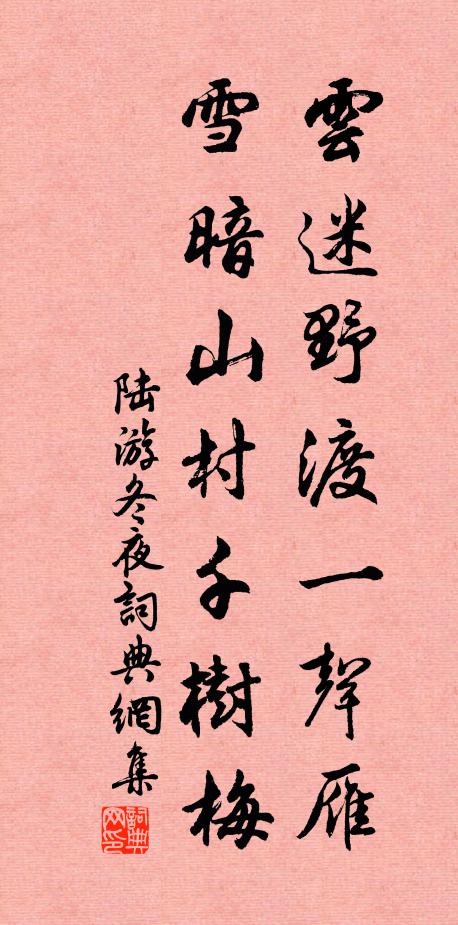 雲迷野渡一聲雁
雪暗山村千樹梅
陆游冬夜詞典網集
詞典网印